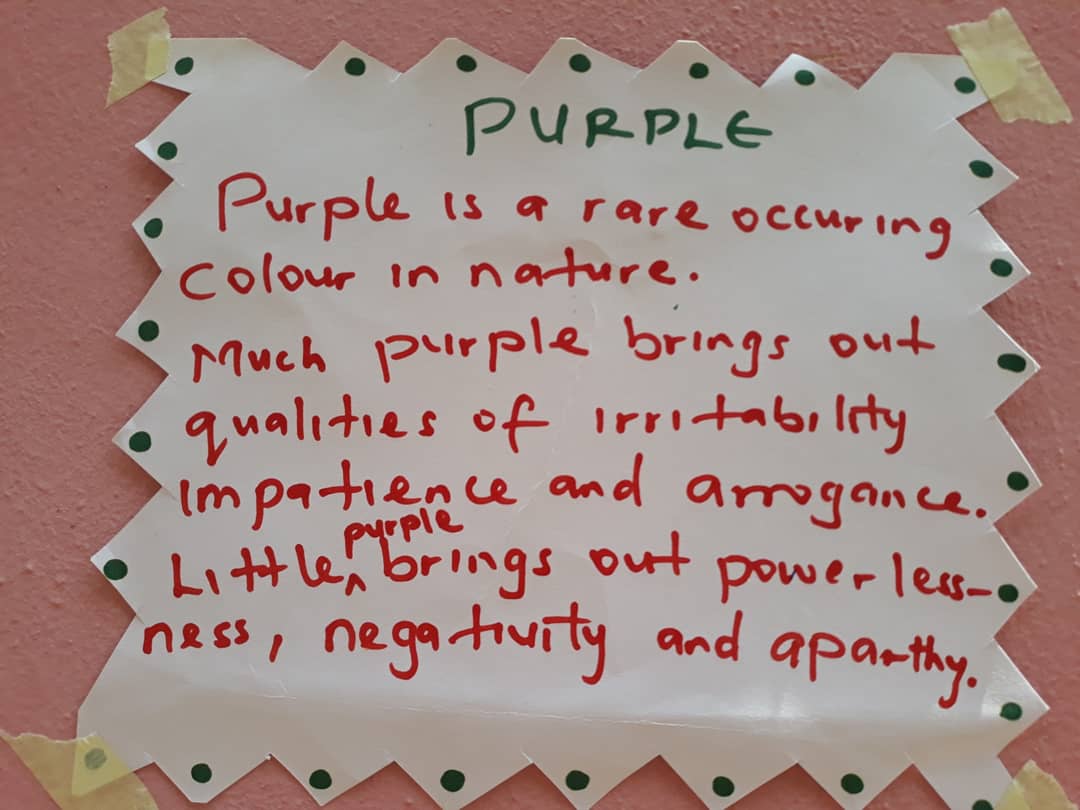 PURPLE
Purple is a rare occuring
colour in nature.
Much purple brings out
qualities of irritability
impatience and arrogance.
Little purple brings out powerless-
ness, negativity and aparthy.